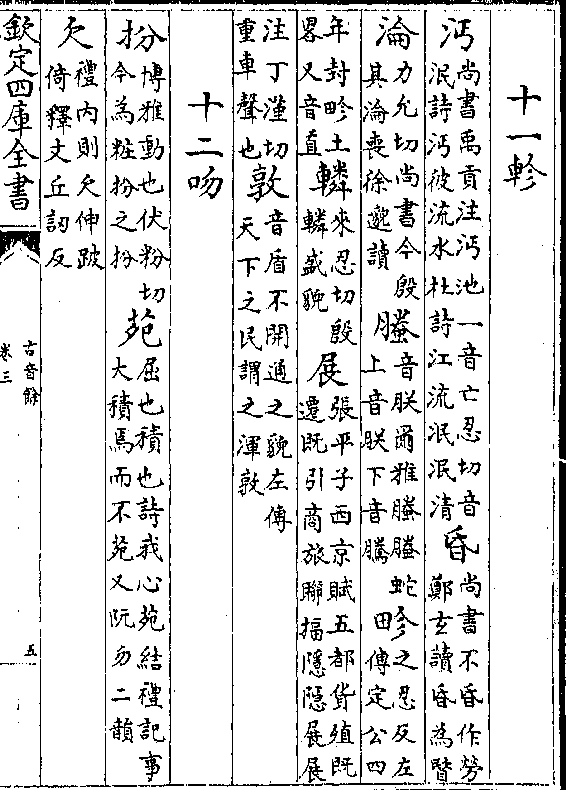 十一軫
沔尚書禹貢注沔池一音亡忍切音
泯詩沔彼流水杜詩江流泯泯清
昏尚書不昏作勞
鄭玄讀昏為暋
淪力允切尚書今殷
其淪喪徐邈讀
螣音朕爾雅螣螣蛇
上音朕下音騰
畛之忍反左
傳定公四
年封畛土
畧又音直
轔來忍切殷
轔盛貌
展張平子西京賦五都貨殖既
遷既引商旅聯槅隱隱展展
注丁謹切
重車聲也
敦音盾不開通之貌左傳
天下之民謂之渾敦
十二吻
扮博雅動也伏粉切
今為粧扮之扮
苑屈也積也詩我心苑結禮記事
大積焉而不苑又阮勿二韻
欠禮內則欠伸跛
倚釋文丘訒反
欽定四庫全書
古音餘
卷三
五